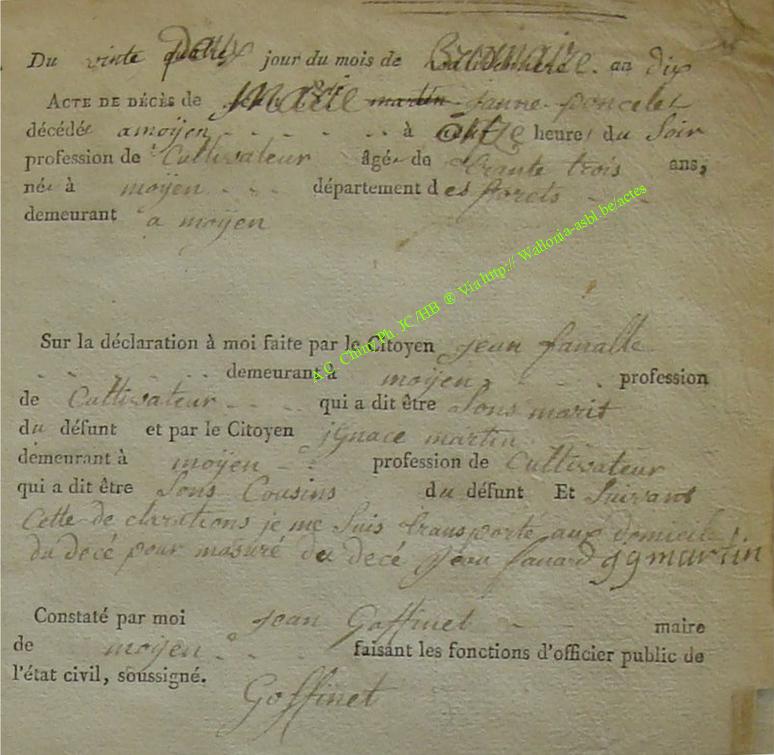 Du vinte deux jour du mois de Brumaire an dix
ACTE DE DÉCÈS de Marie jeanne poncelet
décédée a moÿen à onze heures du Soir
profession de Cultivateur âgée de trante trois ans,
née à moÿen département des forets
demeurant a moÿen
A.C. Chiny Ph. JC/HB ® Via http:// Wallonia-asbl.be/actes
Sur la déclaration à moi faite par le Citoyen jean fanalle
demeurant à moÿen profession
de Cultivateur qui a dit être Sons marit
du défunt et par le Citoyen ignace martin
demeurant à moÿen profession de Cultivateur
qui a dit être Sons Cousins du défunt Et Suivant
Cette de clarations je me Suis transporte aux domicile
du decé pour masuré du decé jean martin
Constaté par moi jean Goffinet maire
de moÿen faisant les fonctions d'officier public de
l'état civil, soussigné.
Goffinet